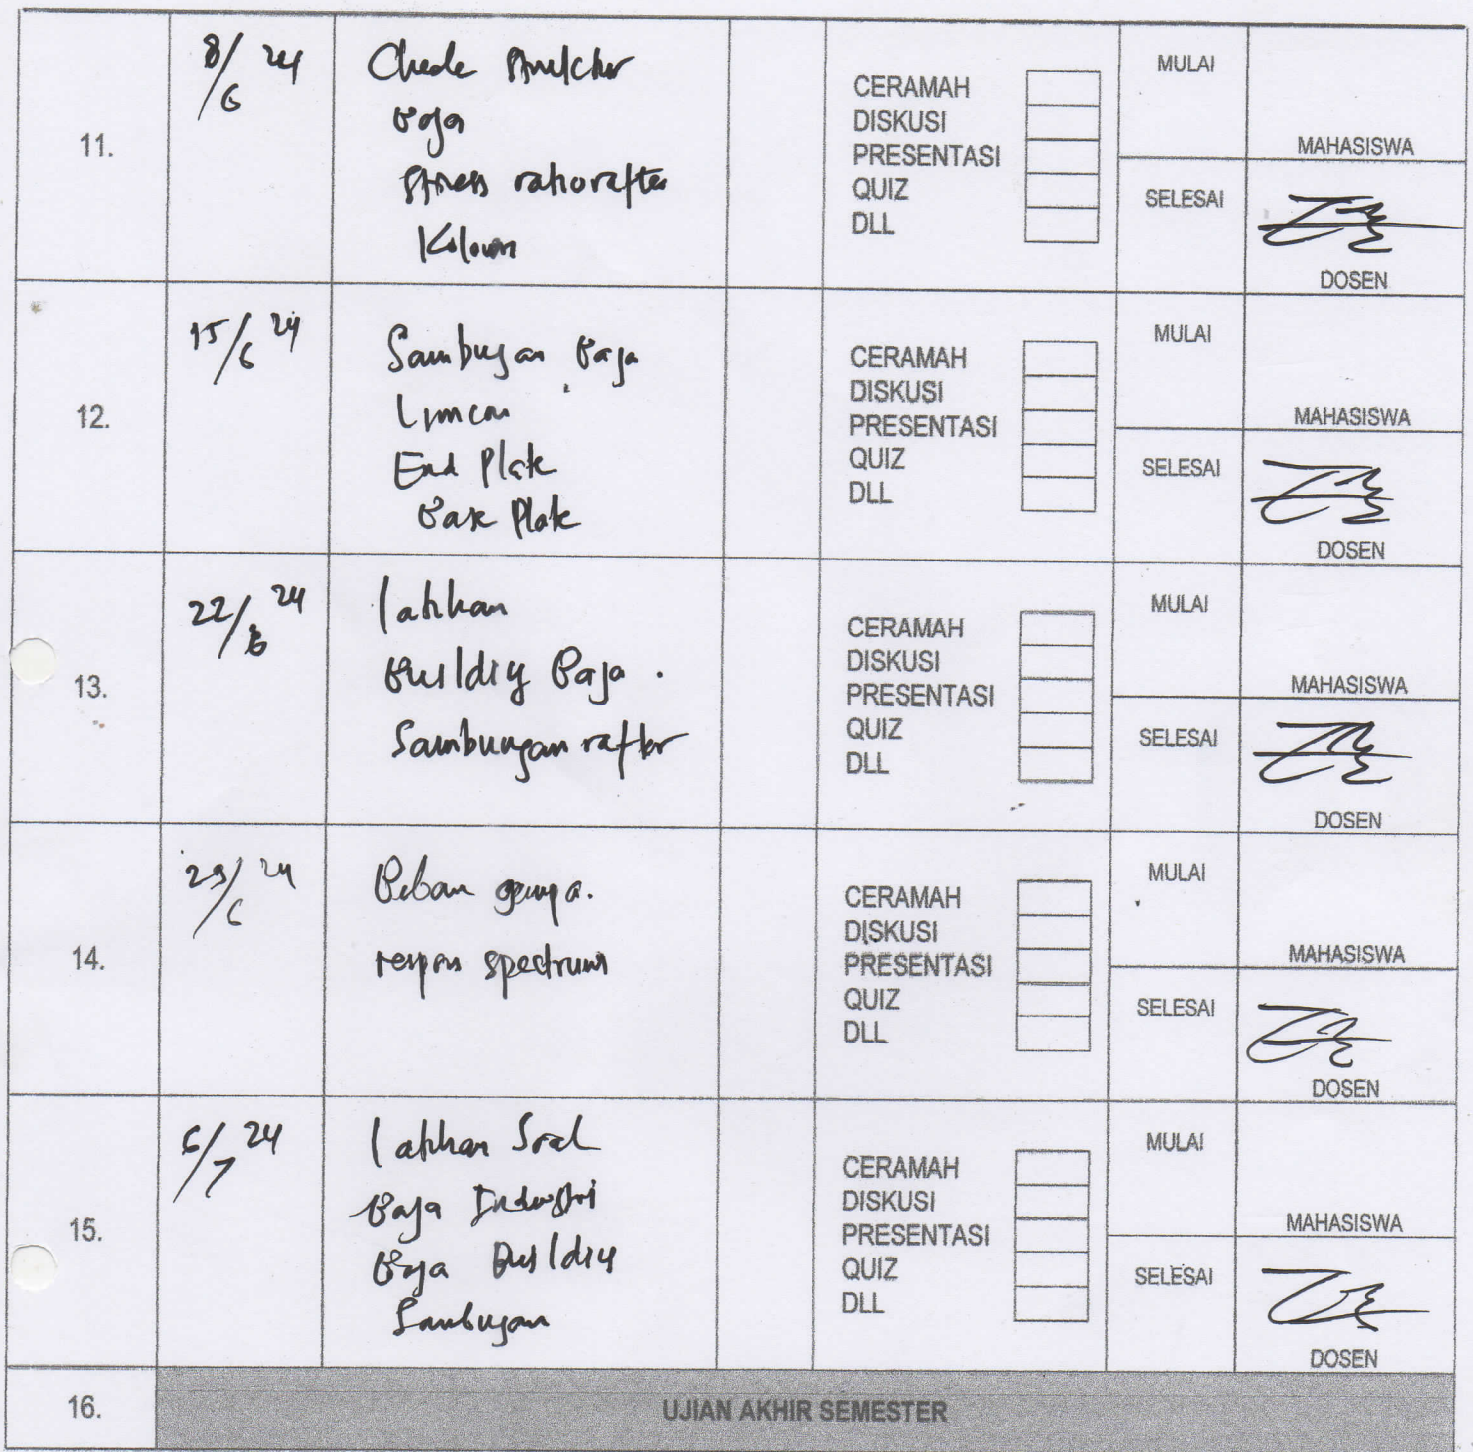 11.
8/6 24
Check Struktur
Baja
Stress ratio rafter
Kolom
CERAMAH
DISKUSI
PRESENTASI
QUIZ
DLL
MULAI
MAHASISWA
SELESAI
DOSEN
12.
15/6 24
Sambungan Baja
End Plate
Base Plate
CERAMAH
DISKUSI
PRESENTASI
QUIZ
DLL
MULAI
MAHASISWA
SELESAI
DOSEN
13.
22/6 24
latihan
Building Baja.
Sambungan rafter
CERAMAH
DISKUSI
PRESENTASI
QUIZ
DLL
MULAI
MAHASISWA
SELESAI
DOSEN
14.
29/6 24
Beban gempa.
respon spectrum
CERAMAH
DISKUSI
PRESENTASI
QUIZ
DLL
MULAI
MAHASISWA
SELESAI
DOSEN
15.
6/7 24
latihan Soal
Baja Industri
Baja Building
Sambungan
CERAMAH
DISKUSI
PRESENTASI
QUIZ
DLL
MULAI
MAHASISWA
SELESAI
DOSEN
16.
UJIAN AKHIR SEMESTER